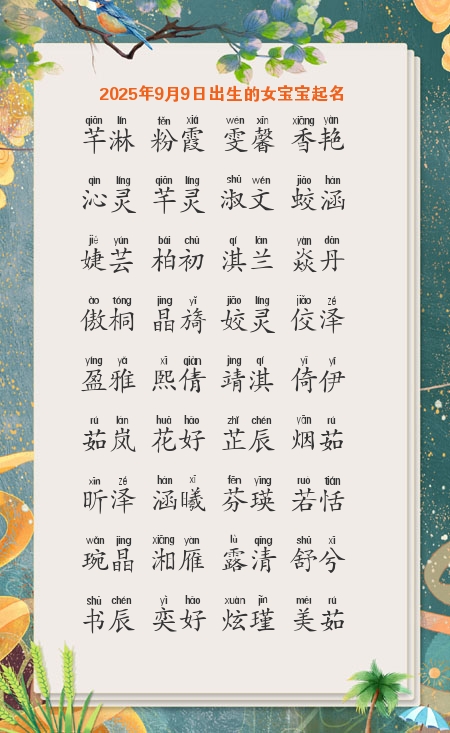 2025年9月9日出生的女宝宝起名
qiān lín fěn xiá wén xīn xiāng yàn
芊淋 粉霞 雯馨 香艳
qìn líng qiān líng shū wén jiāo hán
沁灵 芊灵 淑文 蛟涵
jié yún bái chū qí lán yàn dān
婕芸 柏初 淇兰 焱丹
ào tóng jīng yǐ jiāo líng jiǎo zé
傲桐 晶旖 姣灵 佼泽
yíng yǎ xī qiàn jìng qí yǐ yī
盈雅 熙倩 靖淇 倚伊
rú lán huā hǎo zhǐ chén yān rú
茹岚 花好 芷辰 烟茹
xīn zé hán xī fēn yīng ruò tián
昕泽 涵曦 芬瑛 若恬
wǎn jīng xiāng yàn lù qīng shū xī
琬晶 湘雁 露清 舒兮
shū chén yì hǎo xuàn jǐn měi rú
书辰 奕好 炫瑾 美茹